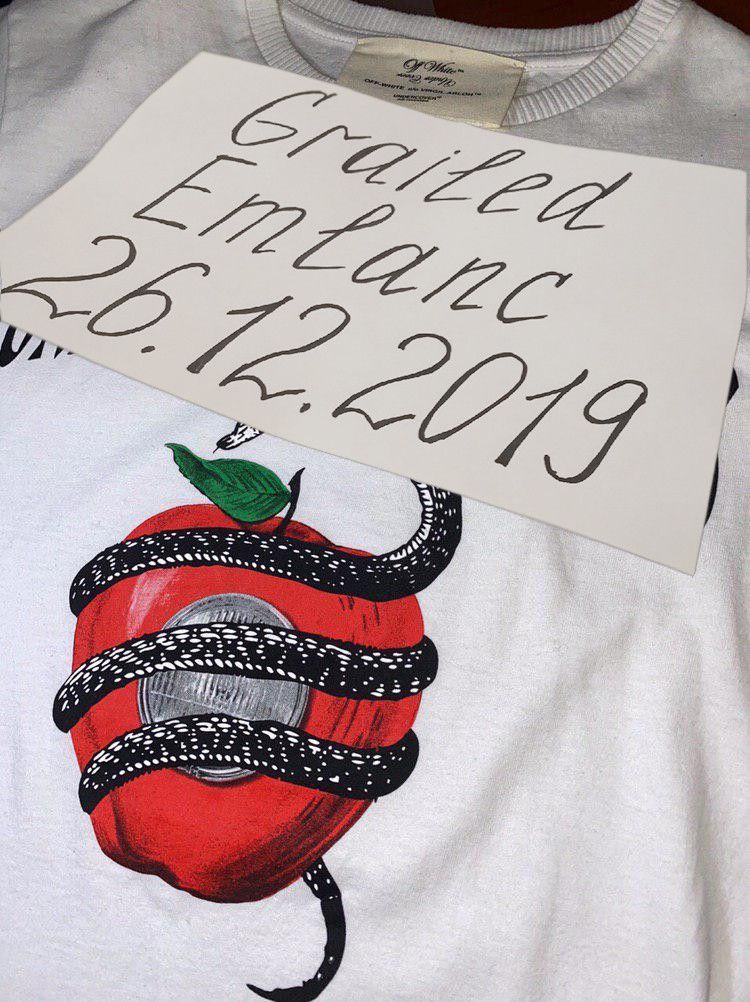 Off White™
Under Cover
OFF-WHITE c/o VIRGIL ABLOH™
UNDERCOVER™
Grailed
Emlanc
26.12.2019